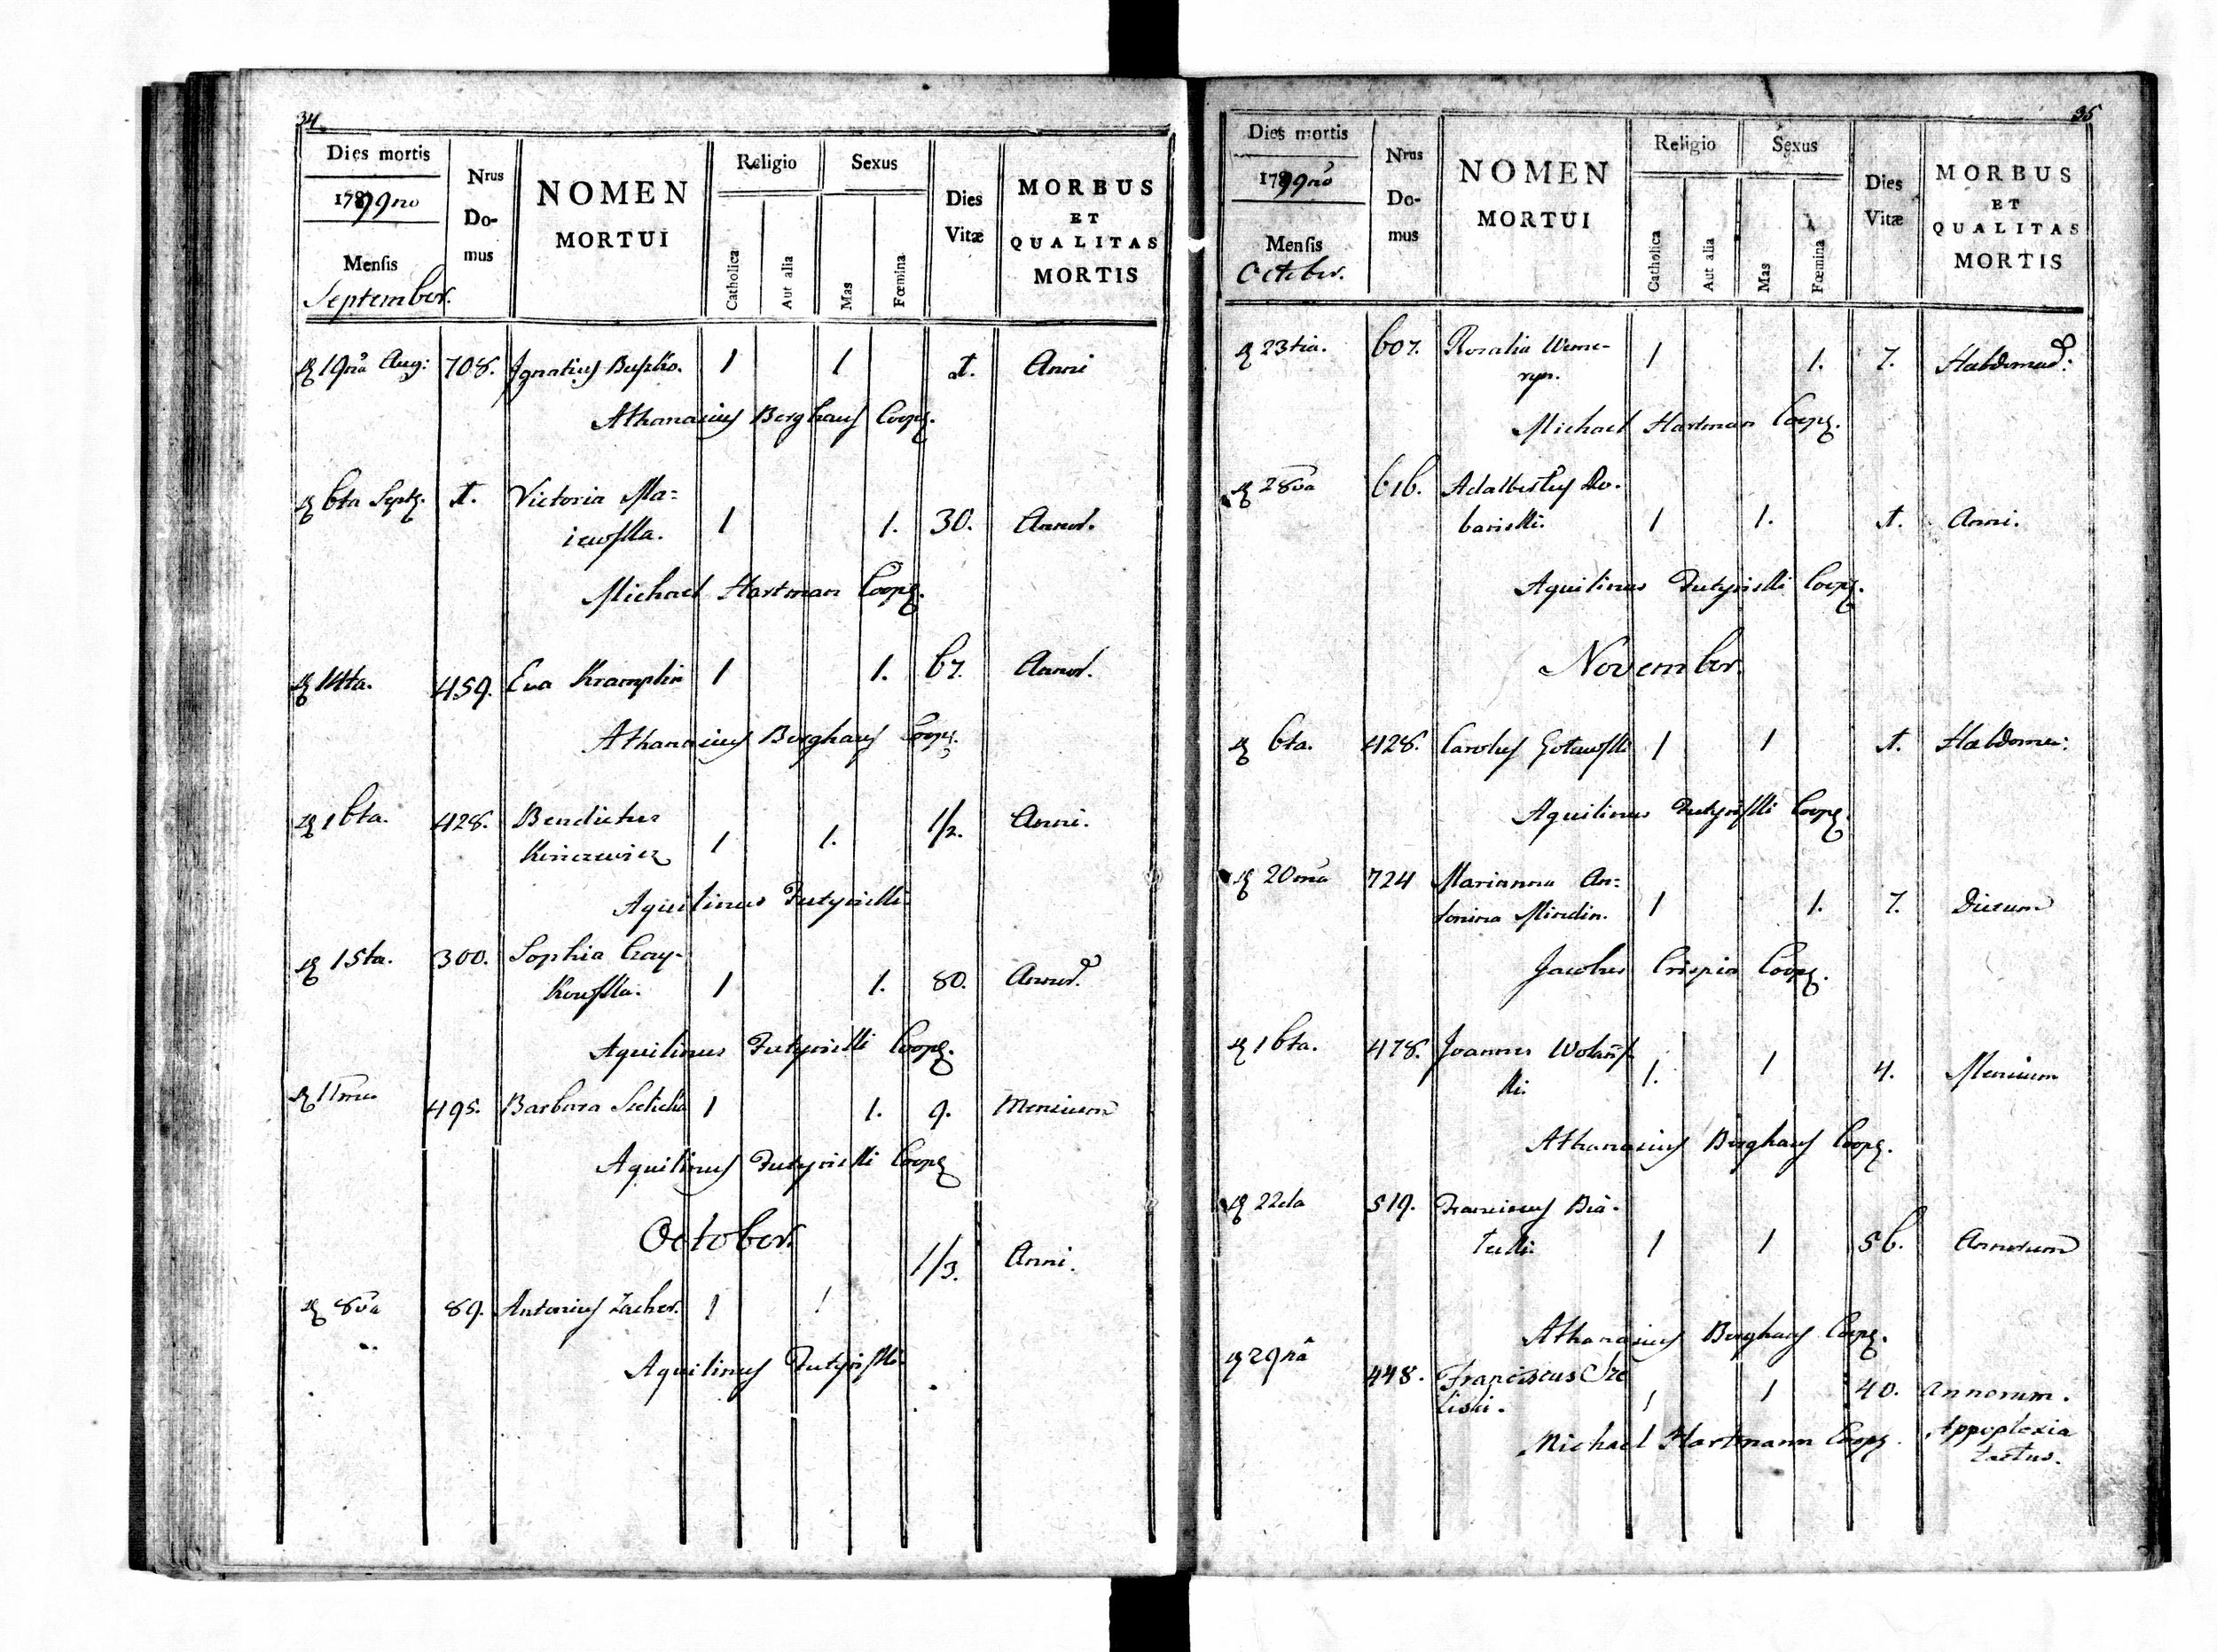 34
Dies mortis
1799no
Mensis
September.
Nrus
Do-
mus
NOMEN
MORTUI
Religio
Catholica
Aut alia
Sexus
Mas
Fœmina
Dies
Vitæ
MORBUS
ET
QUALITAS
MORTIS
19na Aug: 708. Ignatius Busko. 1 1 1. Anni
Athanasius Berghaus Coop.
6ta Sept. 1. Victoria Ma=
iewska. 1 1. 30. Annor.
Michael Hartman Coop.
14ta. 459. Eva Kramplin 1 1. 67. Annor.
Athanasius Berghaus Coop.
16ta. 428. Benedictus 1/2. Anni.
1 1.
Aquilinus
15ta. 300. Sophia Czay-
kowska. 1 1. 80. Annor.
Aquilinus Coop.
495. Barbara 1 1. 9. Mensium
Aquilinus Coop
October.
1/3. Anni.
8va 89. Antonius Zacher. 1 1
Aquilinus
35
Dies mortis
1799no
Mensis
October.
Nrus
Do-
mus
NOMEN
MORTUI
Religio
Catholica
Aut alia
Sexus
Mas
Fœmina
Dies
Vitæ
MORBUS
ET
QUALITAS
MORTIS
23tia. 607. Rosalia Werne-
ryn. 1 1. 7. Hebdomad:
Michael Hartman Coop.
28va 616. Adalbertus Ro-
barski. 1 1. 1. Anni.
Aquilinus Coop.
November.
6ta. 428. Carolus 1 1 1. Hebdoma:
Aquilinus Coop.
20ma 724 Marianna An=
tonina Mindin. 1 1. 7. Dierum
Jacobus Crispin Coop.
16ta. 478. Joannes Wolańs-
ki. 1. 1 4. Mensium
Athanasius Berghaus Coop.
22da 519. Franciscus Bia-
1 1 56. Annorum
Athanasius Berghaus Coop.
29na 448. Franciscus
1 1 40. annorum.
Michael Hartmann Coop. Appoplexia
tactus.